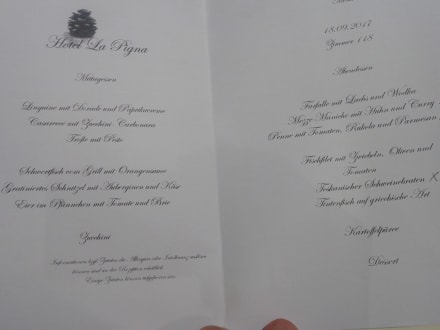 Hotel La Pigna
Mittagessen
Linguine mit Dorade und Paprikacreme
Casarecce mit Zucchini-Carbonara
Trofie mit Pesto
Schwertfisch vom Grill mit Orangensauce
Gratiniertes Schnitzel mit Auberginen und Käse
Eier im Pfännchen mit Tomate und Brie
Zucchini
Informationen bzgl. Zutaten die Allergien oder Intoleranz auslösen
können sind an der Rezeption erhältlich
Einige Zutaten können tiefgefroren sein
18.09.2017
Zimmer 118
Abendessen
Farfalle mit Lachs und Wodka
Mezze Maniche mit Huhn und Curry
Penne mit Tomaten, Rukola und Parmesan
Fischfilet mit Zwiebeln, Oliven und
Tomaten
Toskanischer Schweinebraten X
Tintenfisch auf griechische Art
Kartoffelpüree
Dessert